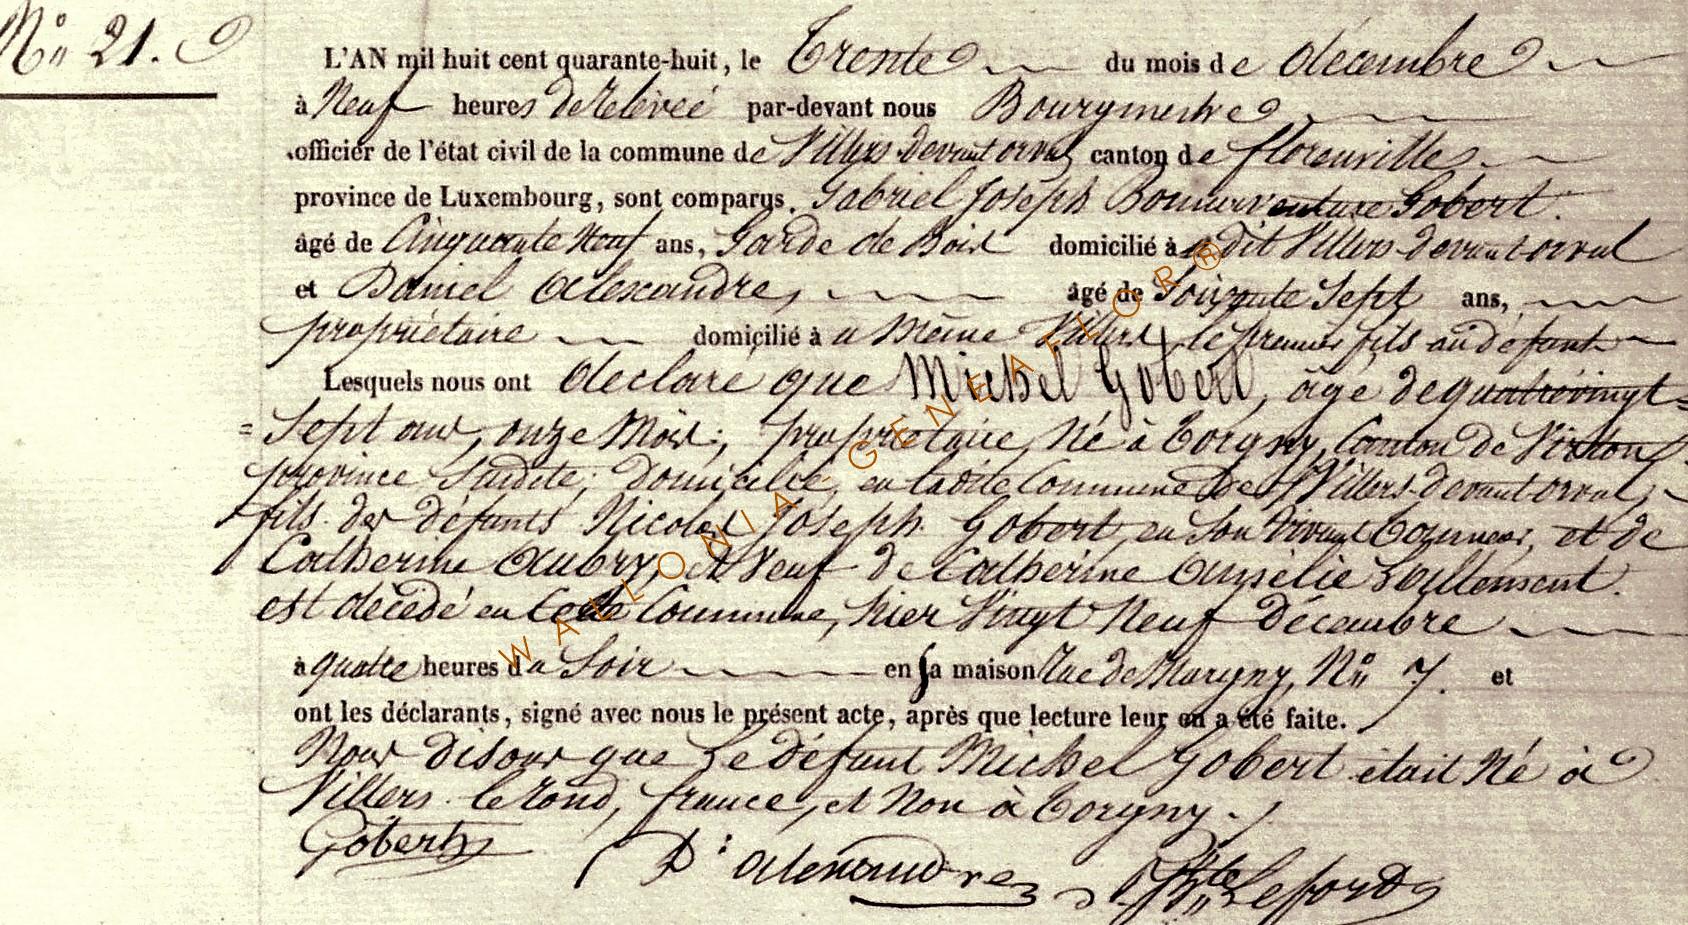 Nº 21.
L'AN mil huit cent quarante-huit, le Trente du mois de décembre
à Neuf heures de relévée par-devant nous Bourgmestre
officier de l'état civil de la commune de Villers devant orval canton de florenville
province de Luxembourg, sont comparus. Gabriel Joseph Bonnaventure Gobert.
âgé de Cinquante Neuf ans, Garde de Bois domicilié à dit Villers-devant-orval
et Daniel Alexandre, âgé de Soixante Sept ans,
propriétaire domicilié à u même Villers le premier fils au défunt
Lesquels nous ont déclaré que Michel Gobert, âgé de quatrevingt=
=Sept ans, onze Mois; propriétaire, Né à Torgny, Canton de Virton,
province Susdite; domicilié, en ladite Commune de Villers-devant-orval,
fils des défunts Nicolas Joseph Gobert, en son vivant et de
Catherine Aubry, et Veuf de Catherine Aurélie
est décédé en Cette Commune, hier Vingt Neuf Décembre
à quatre heures du Soir en sa maison Rue de Margny, Nº 7. et
ont les déclarants, signé avec nous le présent acte, après que lecture leur en a été faite.
Nous disons que Le défunt Michel Gobert était Né à
Villers-le rond, france, et Non à Torgny.
Gobert Dl alexandre Bte Leford
WALLONIA-GENEAFLOR®